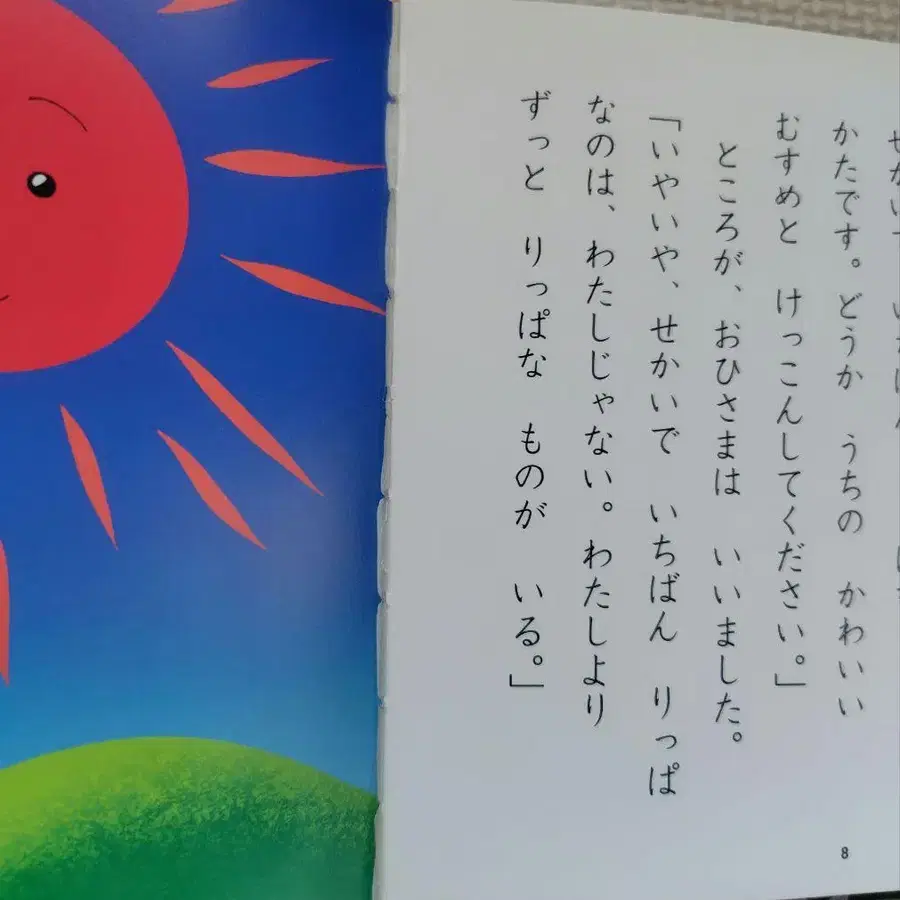 かたです。どうか　うちの　かわいい
むすめと　けっこんしてください。」
ところが、おひさまは　いいました。
「いやいや、せかいで　いちばん　りっぱ
なのは、わたしじゃない。わたしより
ずっと　りっぱな　ものが　いる。」
8